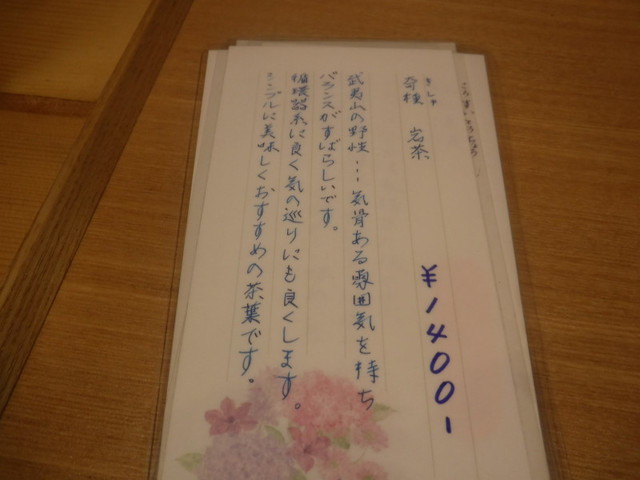 きしゅ
奇種 岩茶
¥1400-
武夷山の野性…気骨ある雰囲気を持ち
バランスがすばらしいです。
循環器系に良く気の巡りにも良くします。
シンプルに美味しくおすすめの茶葉です。